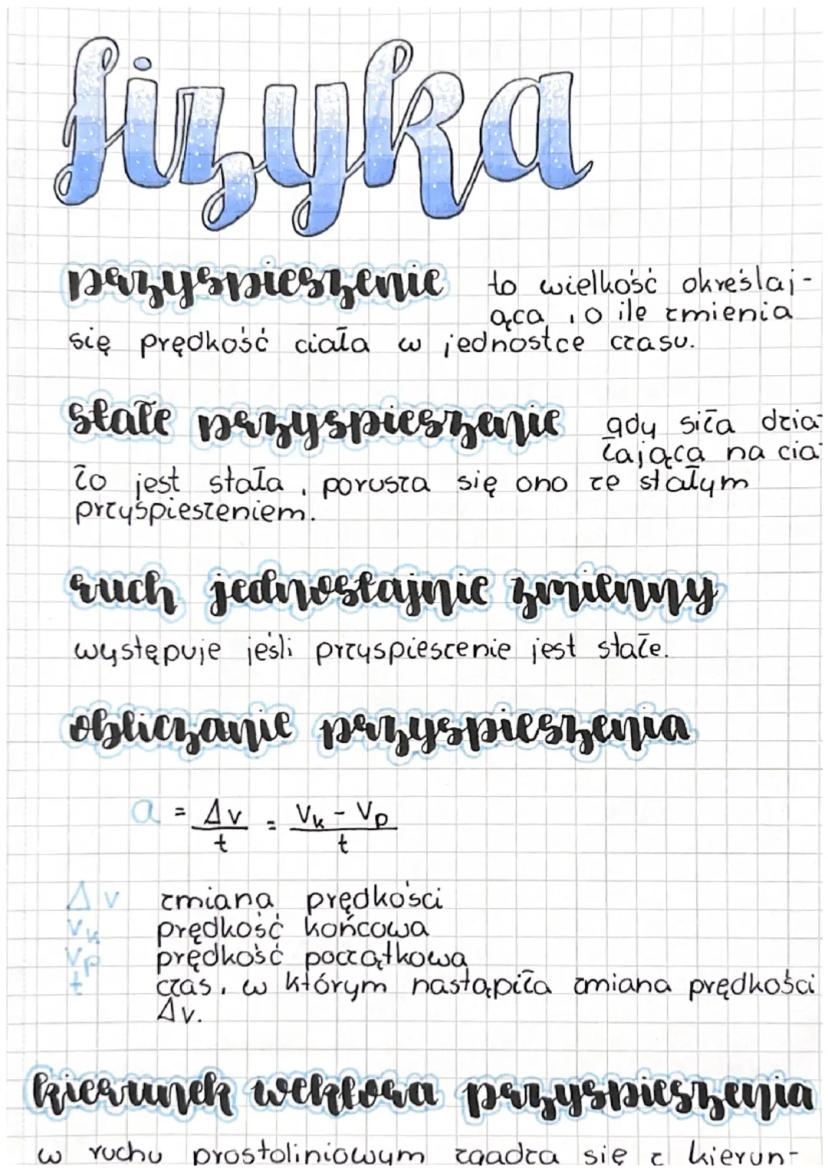 fizyka
przyspieszenie to wielkość określaj-
ąca, o ile zmienia
się prędkość ciała w jednostce czasu.
stałe przyspieszenie gdy siła dzia-
łająca na cia-
ło jest stała, porusza się ono ze stałym
przyspieszeniem.
ruch jednostajnie zmienny
występuje jeśli przyspieszenie jest stałe.
obliczanie przyspieszenia
a = Δv/t = Vk - Vp/t
Δv zmiana prędkości
Vk prędkość końcowa
Vp prędkość początkowa
t czas, w którym nastąpiła zmiana prędkości
Δv.
kierunek wektora przyspieszenia
w ruchu prostoliniowym zgadza się z kierun-